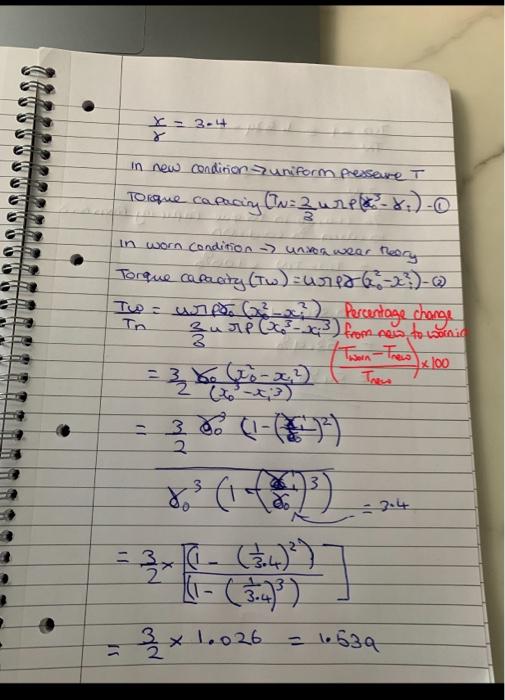 r/r = 3.4
in new condition → uniform pressure T
Torque capacity (TN = 2/3 μπρ(r₀³ - rᵢ) - ①
in worn condition → wear theory
Torque capacity (Tw) = μπρr (r₀² - rᵢ²) - ②
Tw/Tn = μπρr₀ (r₀² - rᵢ²) / 2/3 μπρ (r₀³ - rᵢ³)
Percentage change
from new to worn is
(Tworn - Tnew / Tnew) x 100
= 3/2 r₀ (r₀² - rᵢ²) / (r₀³ - rᵢ³)
= 3/2 r₀³ (1 - (rᵢ/r₀)²)
r₀³ (1 - (rᵢ/r₀)³) = 3.4
= 3/2 x [(1 - (1/3.4)²) / (1 - (1/3.4)³)]
= 3/2 x 1.026 = 1.539